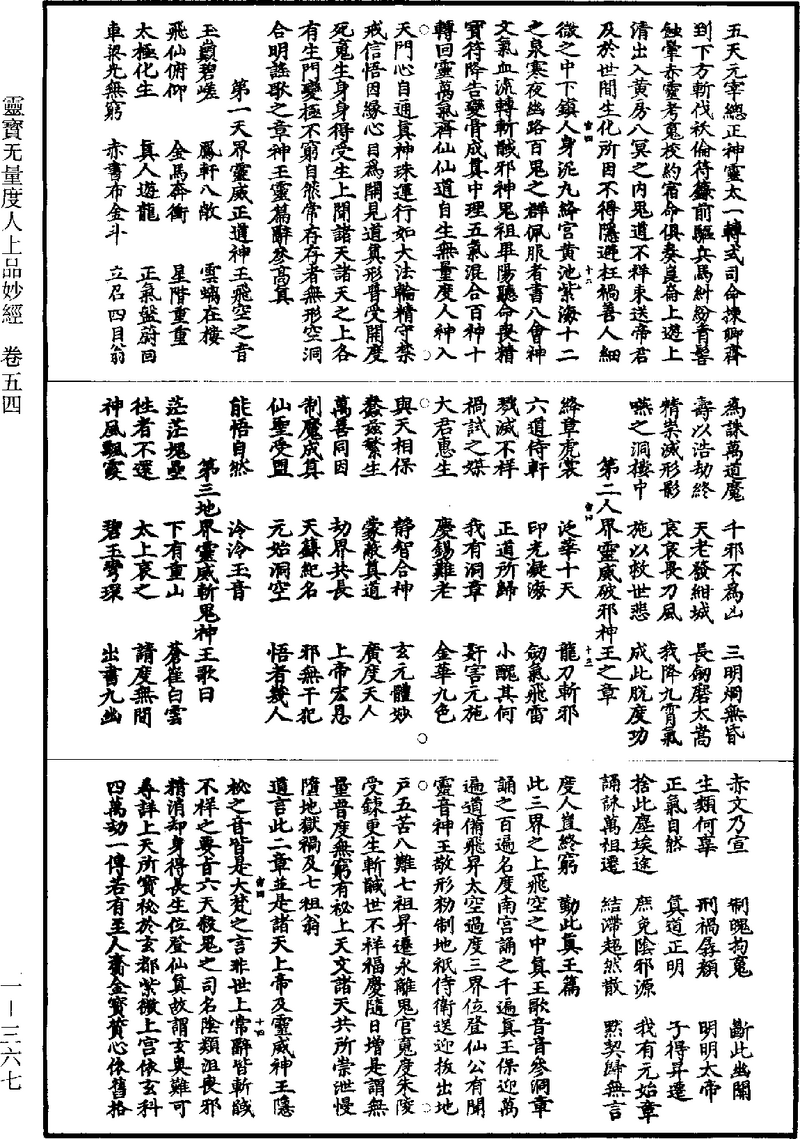 五天元宰總正神靈太一轉式司命揀卿齊
到下方斬伐袄倫符籙前驅兵馬糾紛青髻
蝕暈赤靈考鬼校約宿命俱奏皇崙上遊上
清出入黃房八冥之內鬼道不祥束送帝君
及於世間生化所因不得隱避枉禍善人細
微之中下鎮人身泥丸絳宮黃池紫海十二
之泉寒夜幽路百鬼之群佩服者書八會神
文氣血流轉斬馘邪神鬼祖畢陽聽命喪精
寶符降告變骨成真中理五氣混合百神十
轉回靈萬氣齊仙仙道自生無量度人神入
天門心自通真神珠運行如大法輪精守禁
戒信悟因緣心目為開見道真形普受開度
死魂生身身得受生上聞諸天諸天之上各
有生門變極不窮自然常存存者無形空洞
合明謠歌之章神王靈篇辭參高真
第一天界靈威正道神王飛空之音
玉巖碧嵯 鳳軒八敞 雲螭在棲
飛仙俯仰 金馬奔衝 星階重重
太極化生 真人遊龍 正氣盤蔚回
車梁光無窮 赤書布金斗 立召四目翁
為誅萬道魔 千邪不為凶 三明炯無昏
壽以浩劫終 天老發紺城 長劒磨太嵩
精祟滅形影 哀哀畏刀風 我降九霄氣
嚥之洞樓中 施以救世悲 成此脫度功
第二人界靈威破邪神王之章
絳章虎裳 泛華十天 龍刀斬邪
六道侍軒 印光凝海 劒氣飛雷
戮滅不祥 正道所歸 小醜其何
禍試之媒 我有洞章 姧害元施
大君惠生 慶錫難老 金華九色
與天相保 靜智合神 玄元體妙
蠢茲繁生 蒙蔽真道 廣度天人
萬善同因 劫界共長 上帝宏恩
制魔成真 天蘇紀名 邪無干犯
仙聖受盟 元始洞空 悟者幾人
能悟自然 泠泠玉音
第三地界靈威斬鬼神王歌曰
茫茫塊壘 下有重山 蒼崔白雲
往者不還 太上哀之 請度無間
神風飄霞 碧玉彎環 出書九幽
赤文乃宣 制魄拘魂 斷此幽關
生類何辜 刑禍孱顏 明明太帝
正氣自然 真道正明 子得昇遷
捨此塵埃途 庶免陰邪源 我有元始章
誦詠萬祖遷 結滯超然散 默契歸無言
度人豈終窮 勤此真王篇
此三界之上飛空之中真王歌音音參洞章
誦之百遍名度南宮誦之千遍真王保迎萬
遍道備飛昇太空過度三界位登仙公有聞
靈音神王敬形初制地祇侍衛送迎拔出地
戶五苦八難七祖昇遷永離鬼官魂度朱陵
受鍊更生斬馘世不祥福慶隨日增是謂無
量普度無窮有祕上天文諸天共所崇泄慢
墮地獄禍及七祖翁
道言此二章並是諸天上帝及靈威神王隱
祕之音皆是大梵之言非世上常辭皆斬馘
不祥之要旨六天殺鬼之司名陰類沮喪邪
精消却身得長生位登仙真故謂玄奧難可
尋詳上天所寶祕於玄都紫微上宮依玄科
四萬劫一傳若有至人齎金寶質心依舊格
靈寶无量度人上品妙經 卷五四
一—三六七